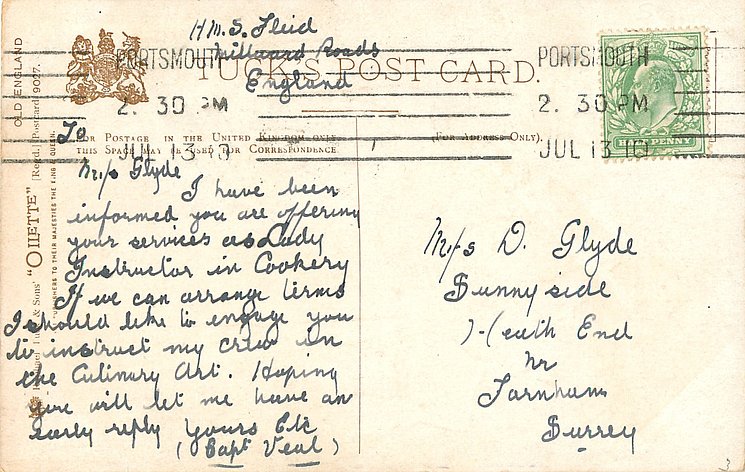 H.M.S. Fleid
Millward Roads
England
PORTSMOUTH
2. 30 PM
JUL 13 10
TUCK'S POST CARD.
PORTSMOUTH
2. 30 PM
JUL 13 10
HALFPENNY
FOR POSTAGE IN THE UNITED KINGDOM ONLY,
THIS SPACE MAY BE USED FOR CORRESPONDENCE.
(FOR ADDRESS ONLY).
OLD ENGLAND
"OILETTE" [Regd.] Postcard 9027.
Raphael Tuck & Sons'
PUBLISHERS TO THEIR MAJESTIES THE KING & QUEEN.
To
Mrs Glyde
I have been
informed you are offering
your services as Lady
Instructor in Cookery
If we can arrange terms
I should like to engage you
to instruct my crew in
the Culinary Art. Hoping
you will let me have an
early reply Yours Etc
(Capt Veal)
Mrs D. Glyde
Sunnyside
Heath End
Nr
Farnham
Surrey